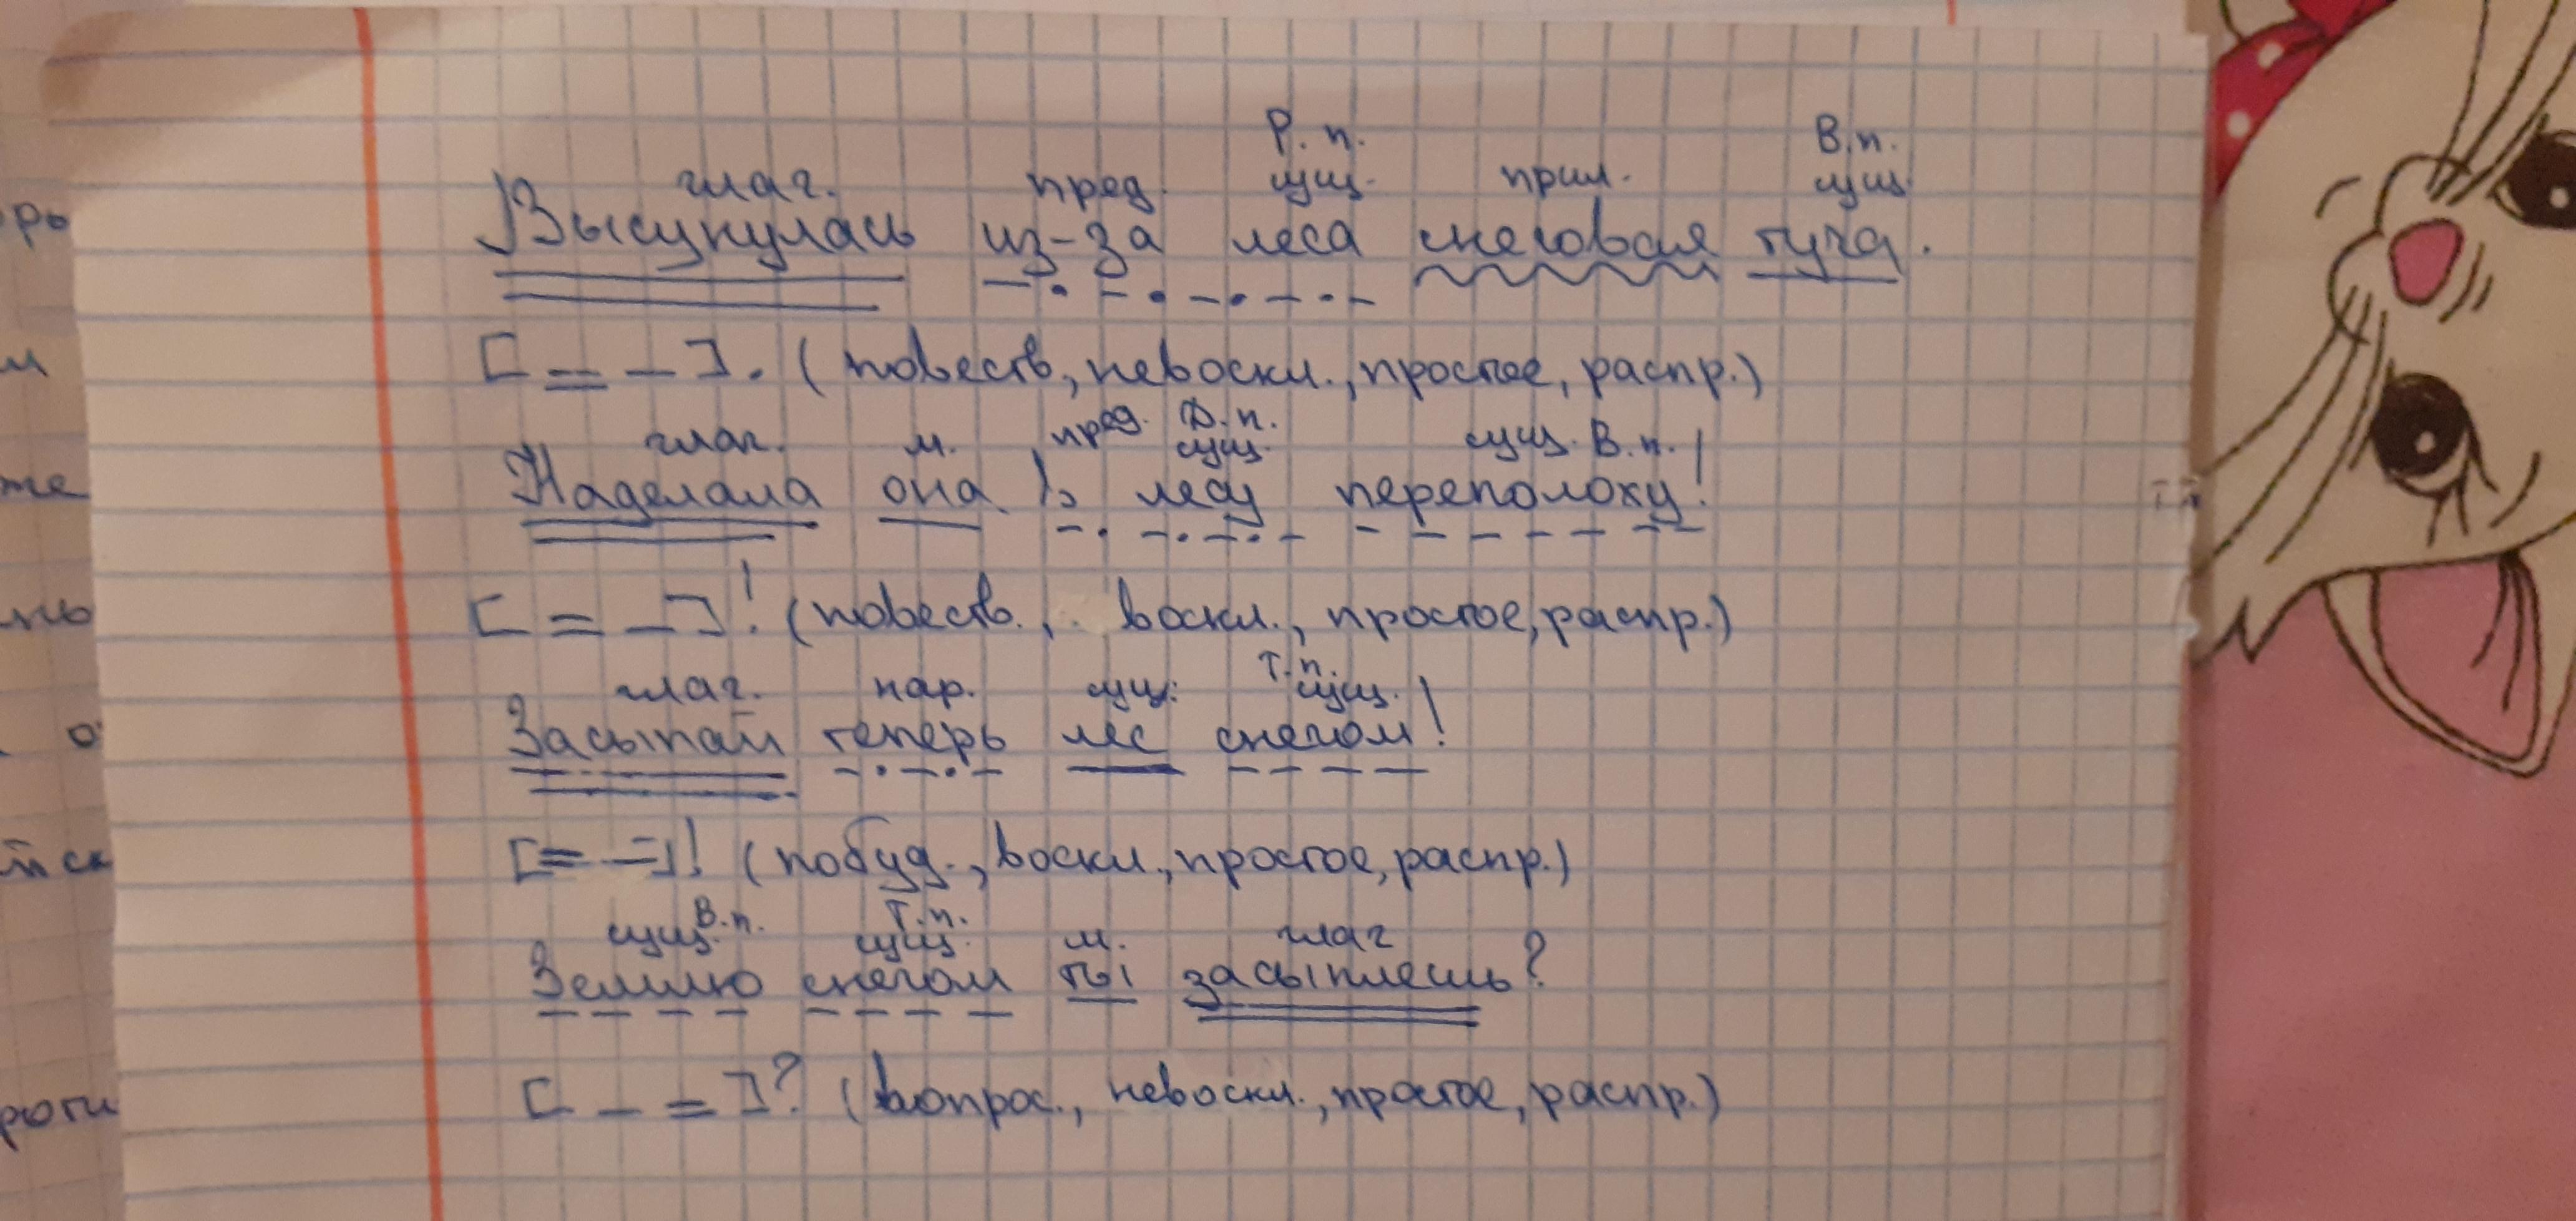 Р.п. В.п.
глаг. пред. сущ. прил. сущ.
Высунулась из-за леса снеговая туча.
[= –]. (повеств., невоскл., простое, распр.)
глаг. м. пред. Д.п. сущ. сущ. В.п.
Наделала она в лесу переполоху!
[= –]! (повеств., воскл., простое, распр.)
Т.п.
глаг. нар. сущ. сущ.
Засыпай теперь лес снегом!
[= –]! (побуд., воскл., простое, распр.)
сущ. В.п. Т.п. сущ. м. глаг
Землю снегом ты засыплешь?
[– =]? (вопрос., невоскл., простое, распр.)
рь
м
же
нь
о
йск
роги